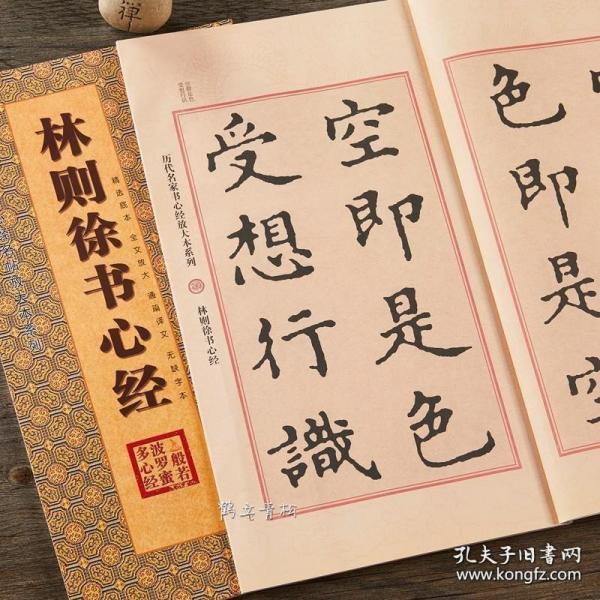 禅
林则徐书心经
精选底本 全文放大 通篇译文 无缺字本
般若
波罗蜜
多心经
历代名家书心经放大本系列
林则徐书心经
色即是空
空即是色
受想行識
孔夫子旧书网
www.kongfz.com